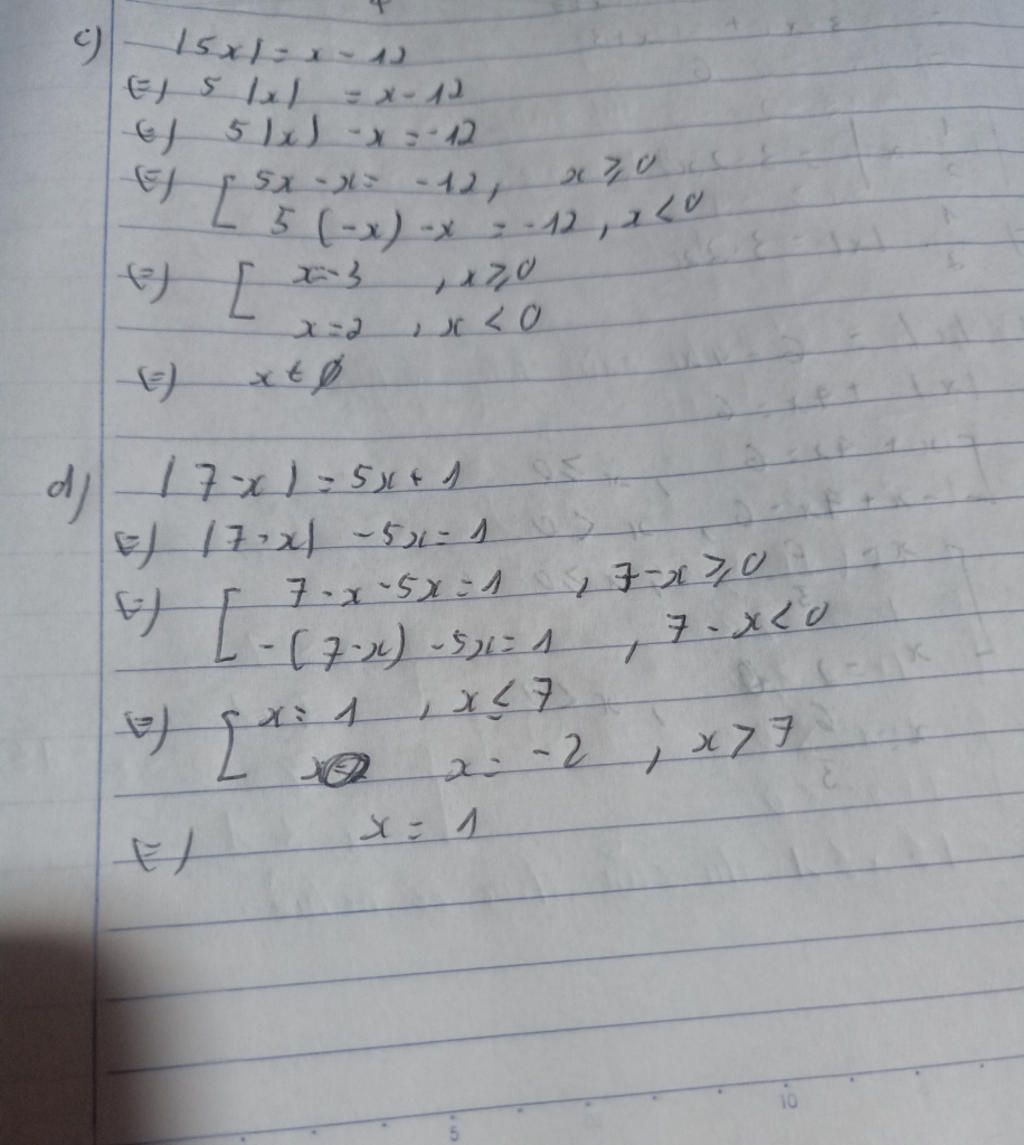 c) |5x| = x - 12
⇔ 5 |x| = x - 12
⇔ 5|x| - x = -12
⇔ [ 5x - x = -12, x ≥ 0
5 (-x) - x = -12, x < 0
⇔ [ x = -3 , x ≥ 0
x = 2 , x < 0
⇔ x ∈ ∅
d) |7 - x| = 5x + 1
⇔ |7 - x| - 5x = 1
⇔ [ 7 - x - 5x = 1 , 7 - x ≥ 0
- (7 - x) - 5x = 1 , 7 - x < 0
⇔ [ x = 1 , x ≤ 7
x = -2 , x > 7
⇔ x = 1
5 10